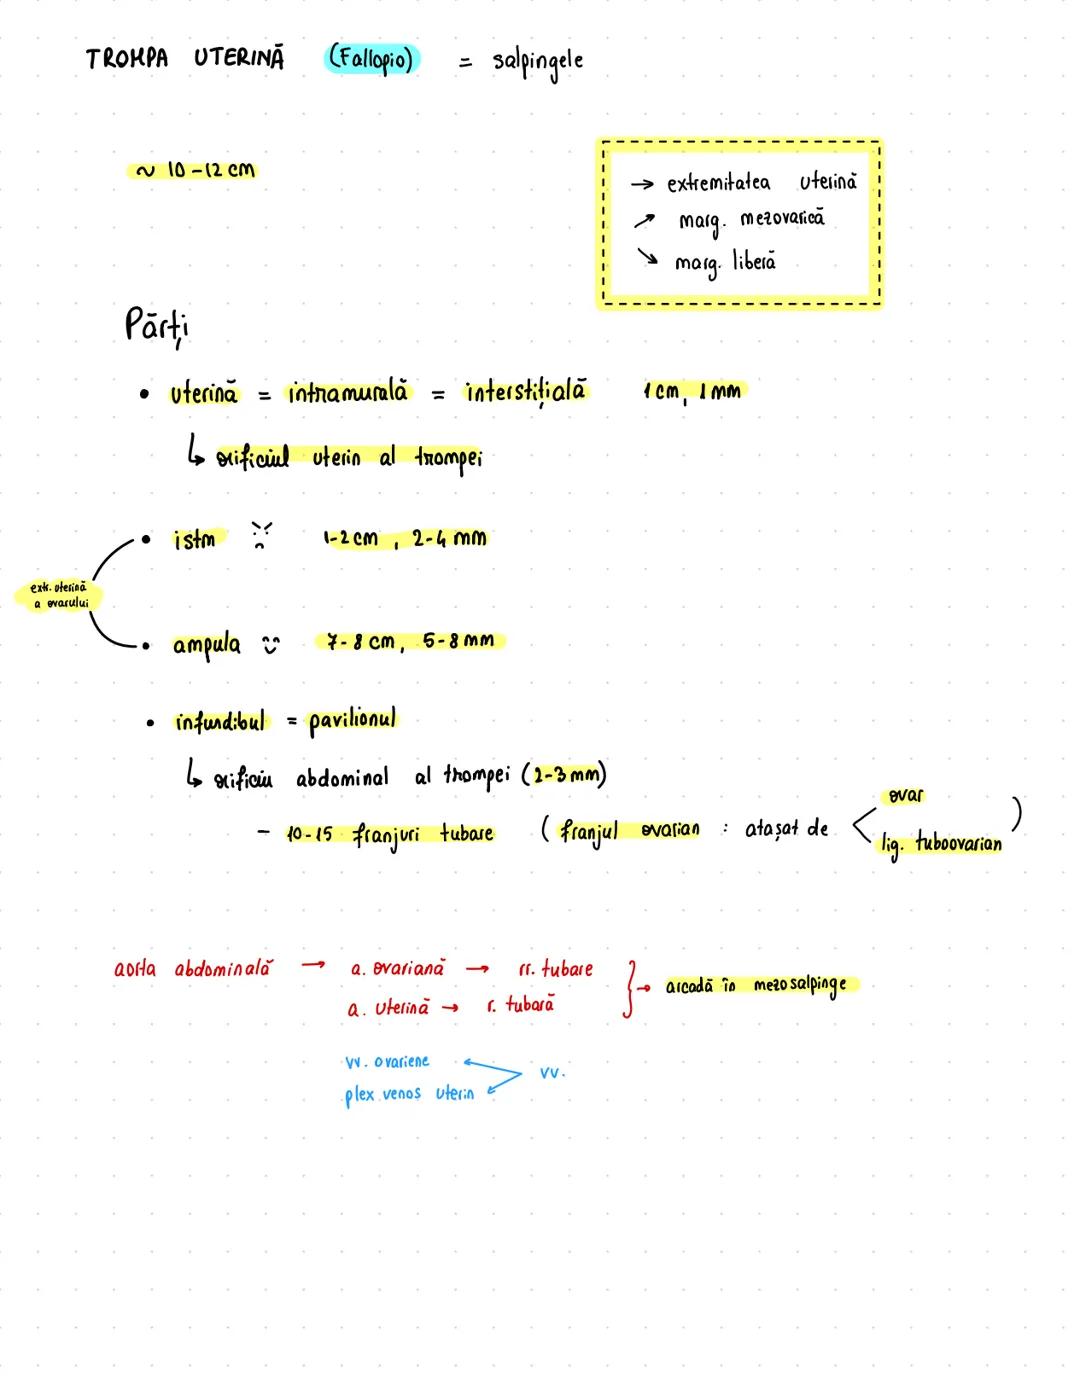 TROMPA UTERINĂ (Fallopio) = salpingele
~ 10-12 cm
→ extremitatea uterină
↗ marg. mezovarică
↘ marg. liberă
Părți
• uterină = intramurală = interstițială 1 cm, 1 mm
↳ orificiul uterin al trompei
• istm 1-2 cm, 2-4 mm
extr. uterină
a ovarului
• ampula 7-8 cm, 5-8 mm
• infundibul = pavilionul
↳ orificiu abdominal al trompei (2-3 mm)
- 10-15 franjuri tubare (franjul ovarian : atașat de
ovar
lig. tuboovarian)
aorta abdominală → a. ovariană → rr. tubare
a. uterină → r. tubară
} → arcadă în mezosalpinge
vv. ovariene
plex venos uterin
vv.